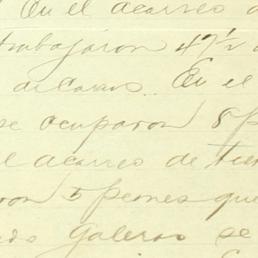 En el acarreo d
trabajaron 47½ d
de Caras.. En el
se ocuparon 8 p
el acarreo de tier
ron 5 peones que
galeras se